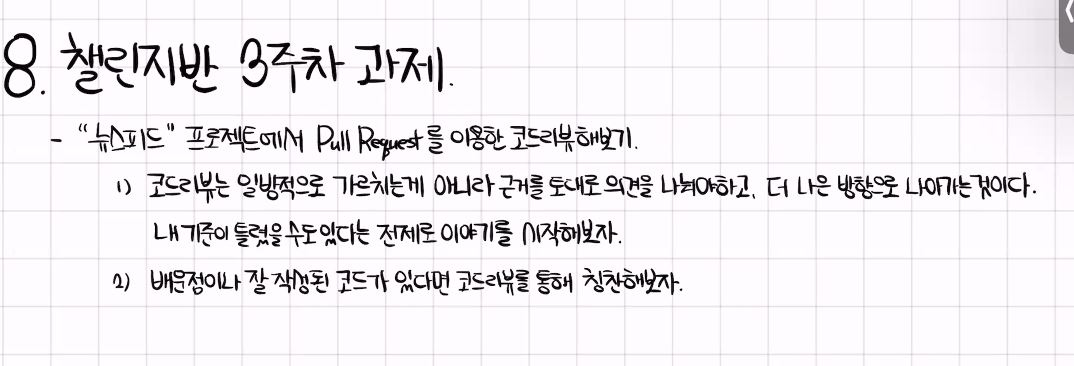 8. 챌린지반 3주차 과제.
- "뉴스피드" 프로젝트에서 Pull Request를 이용한 코드리뷰해보기.
1) 코드리뷰는 일방적으로 가르치는게 아니라 근거를 토대로 의견을 나눠야하고, 더 나은 방향으로 나아가는것이다.
내 기준이 틀렸을수도있다는 전제로 이야기를 시작해보자.
2) 배운점이나 잘 작성된 코드가 있다면 코드리뷰를 통해 칭찬해보자.